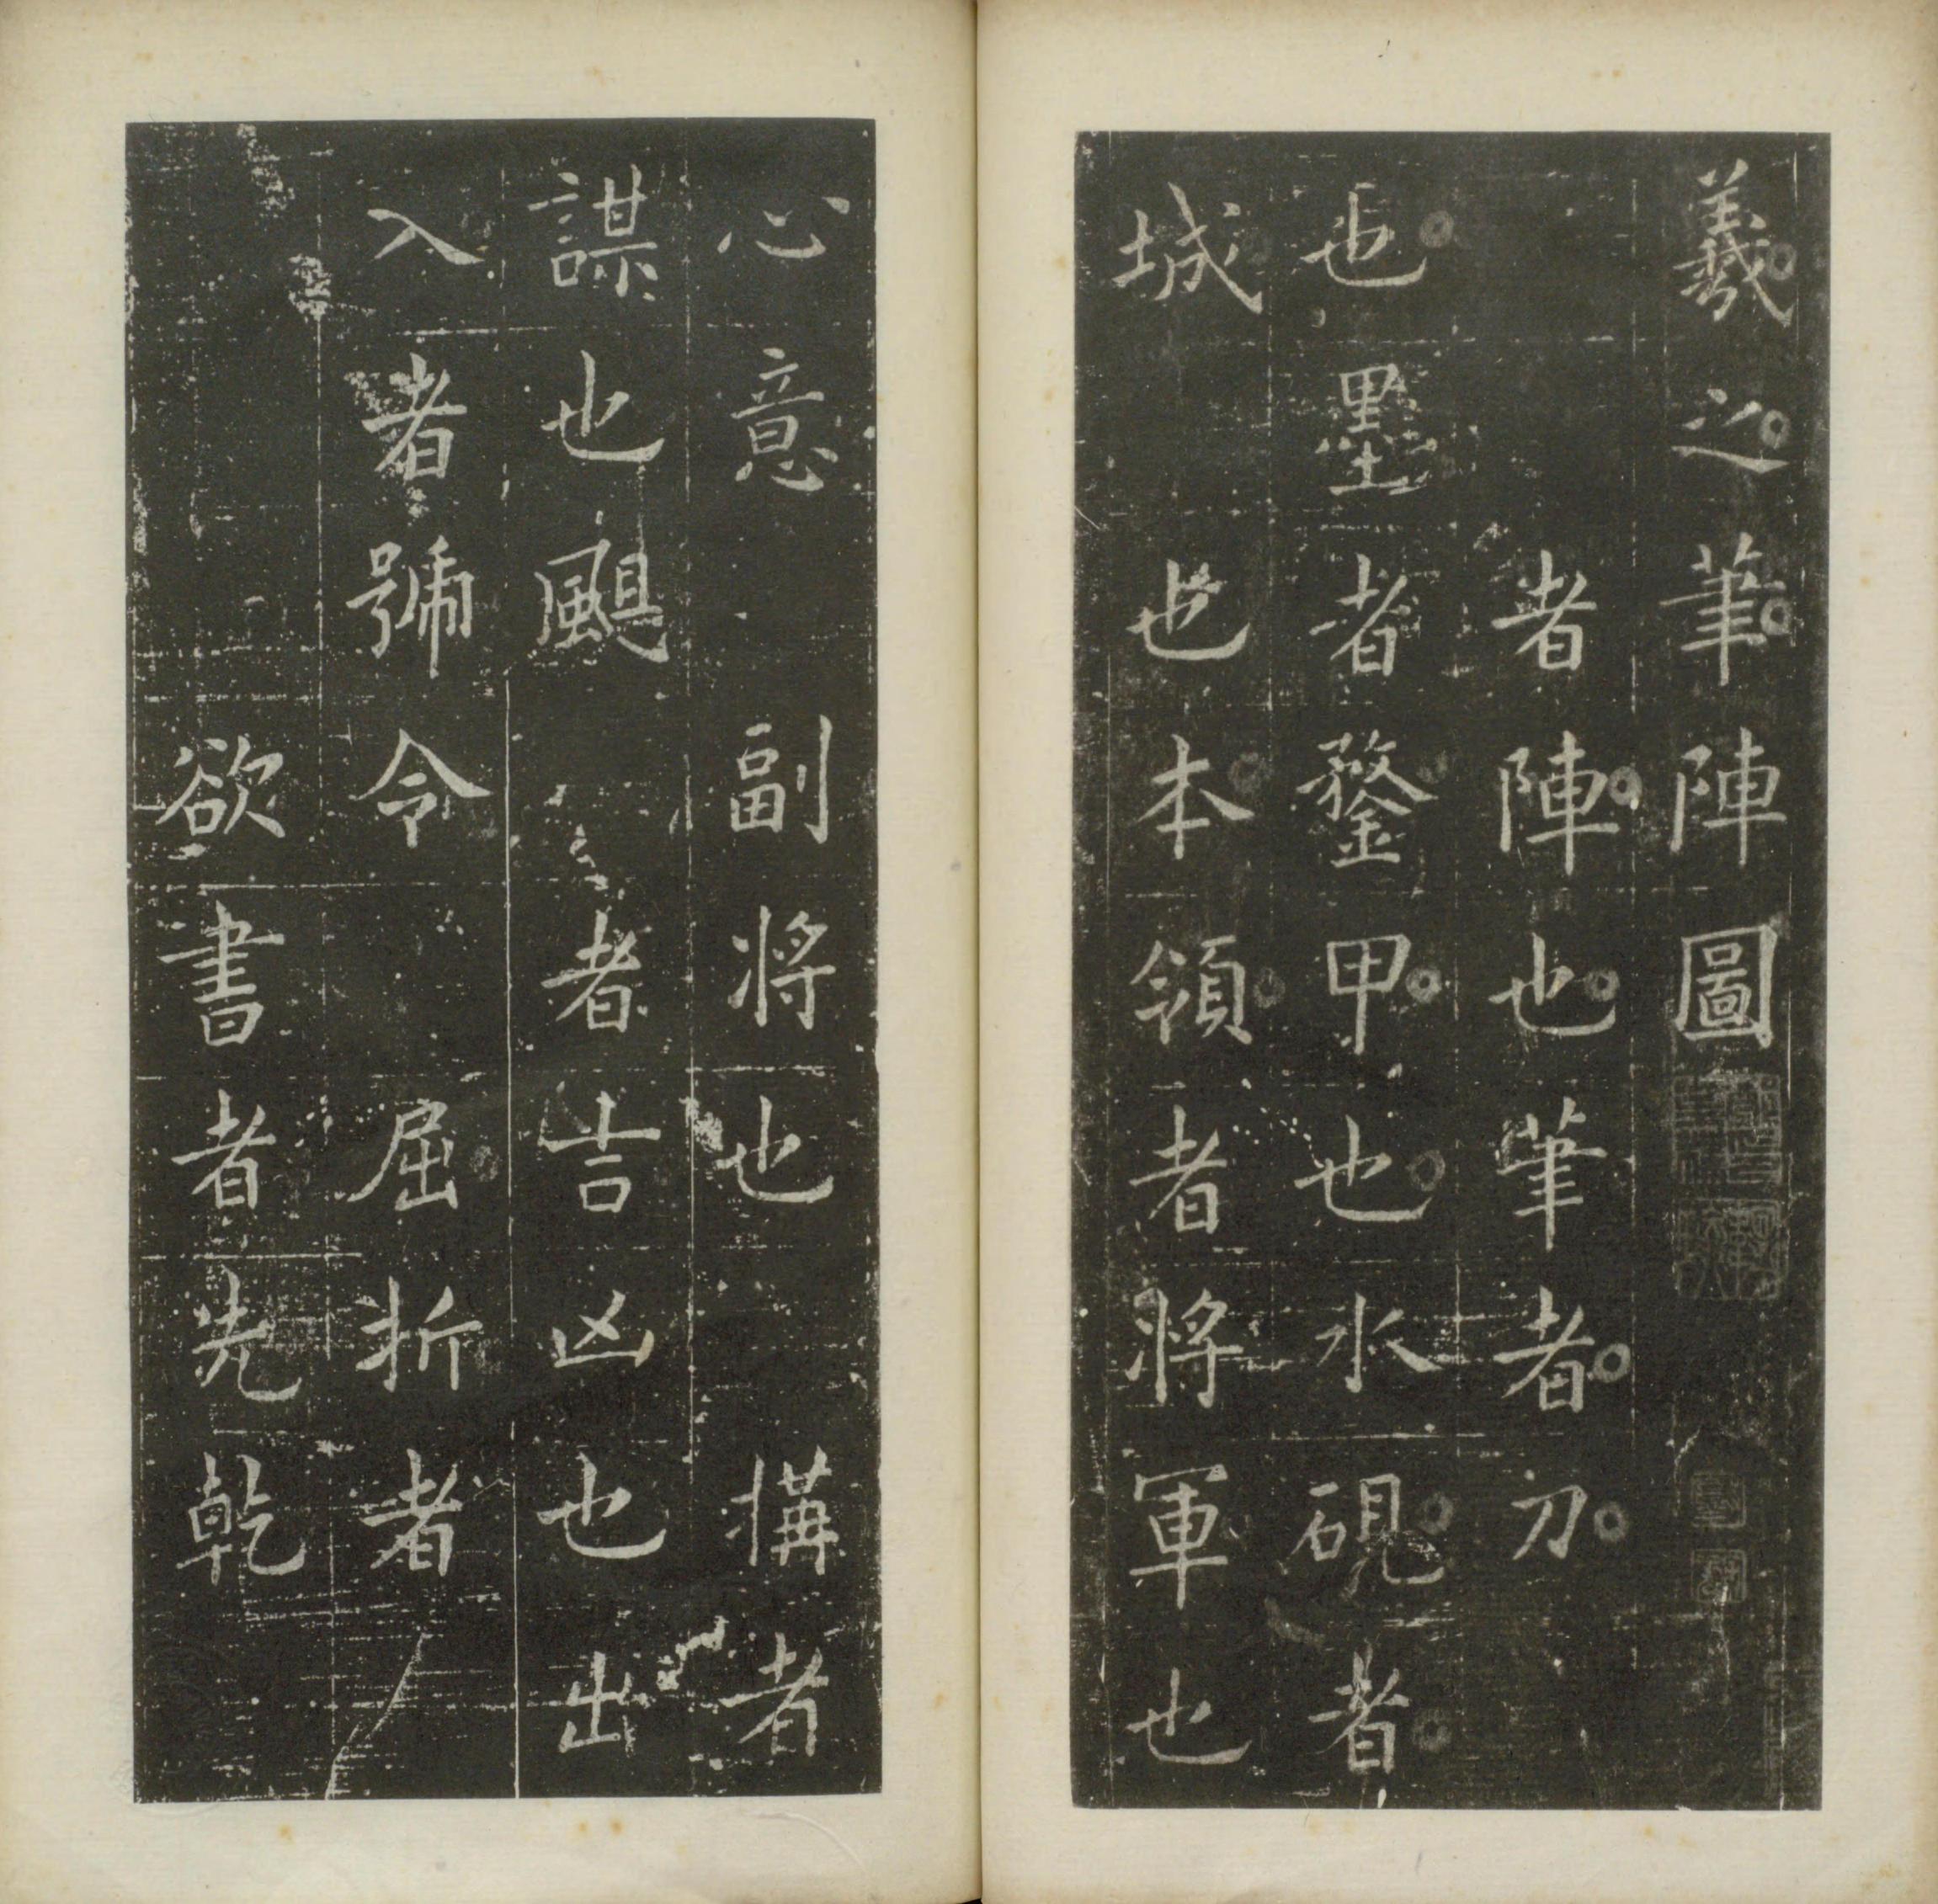 羲之筆陣圖
者陣也筆者刀
也墨者鍪甲也水硯者
城也本領者將軍也
心意副將也搆者
謀也颶者吉凶也出
入者號令屈折者
欲書者先乾